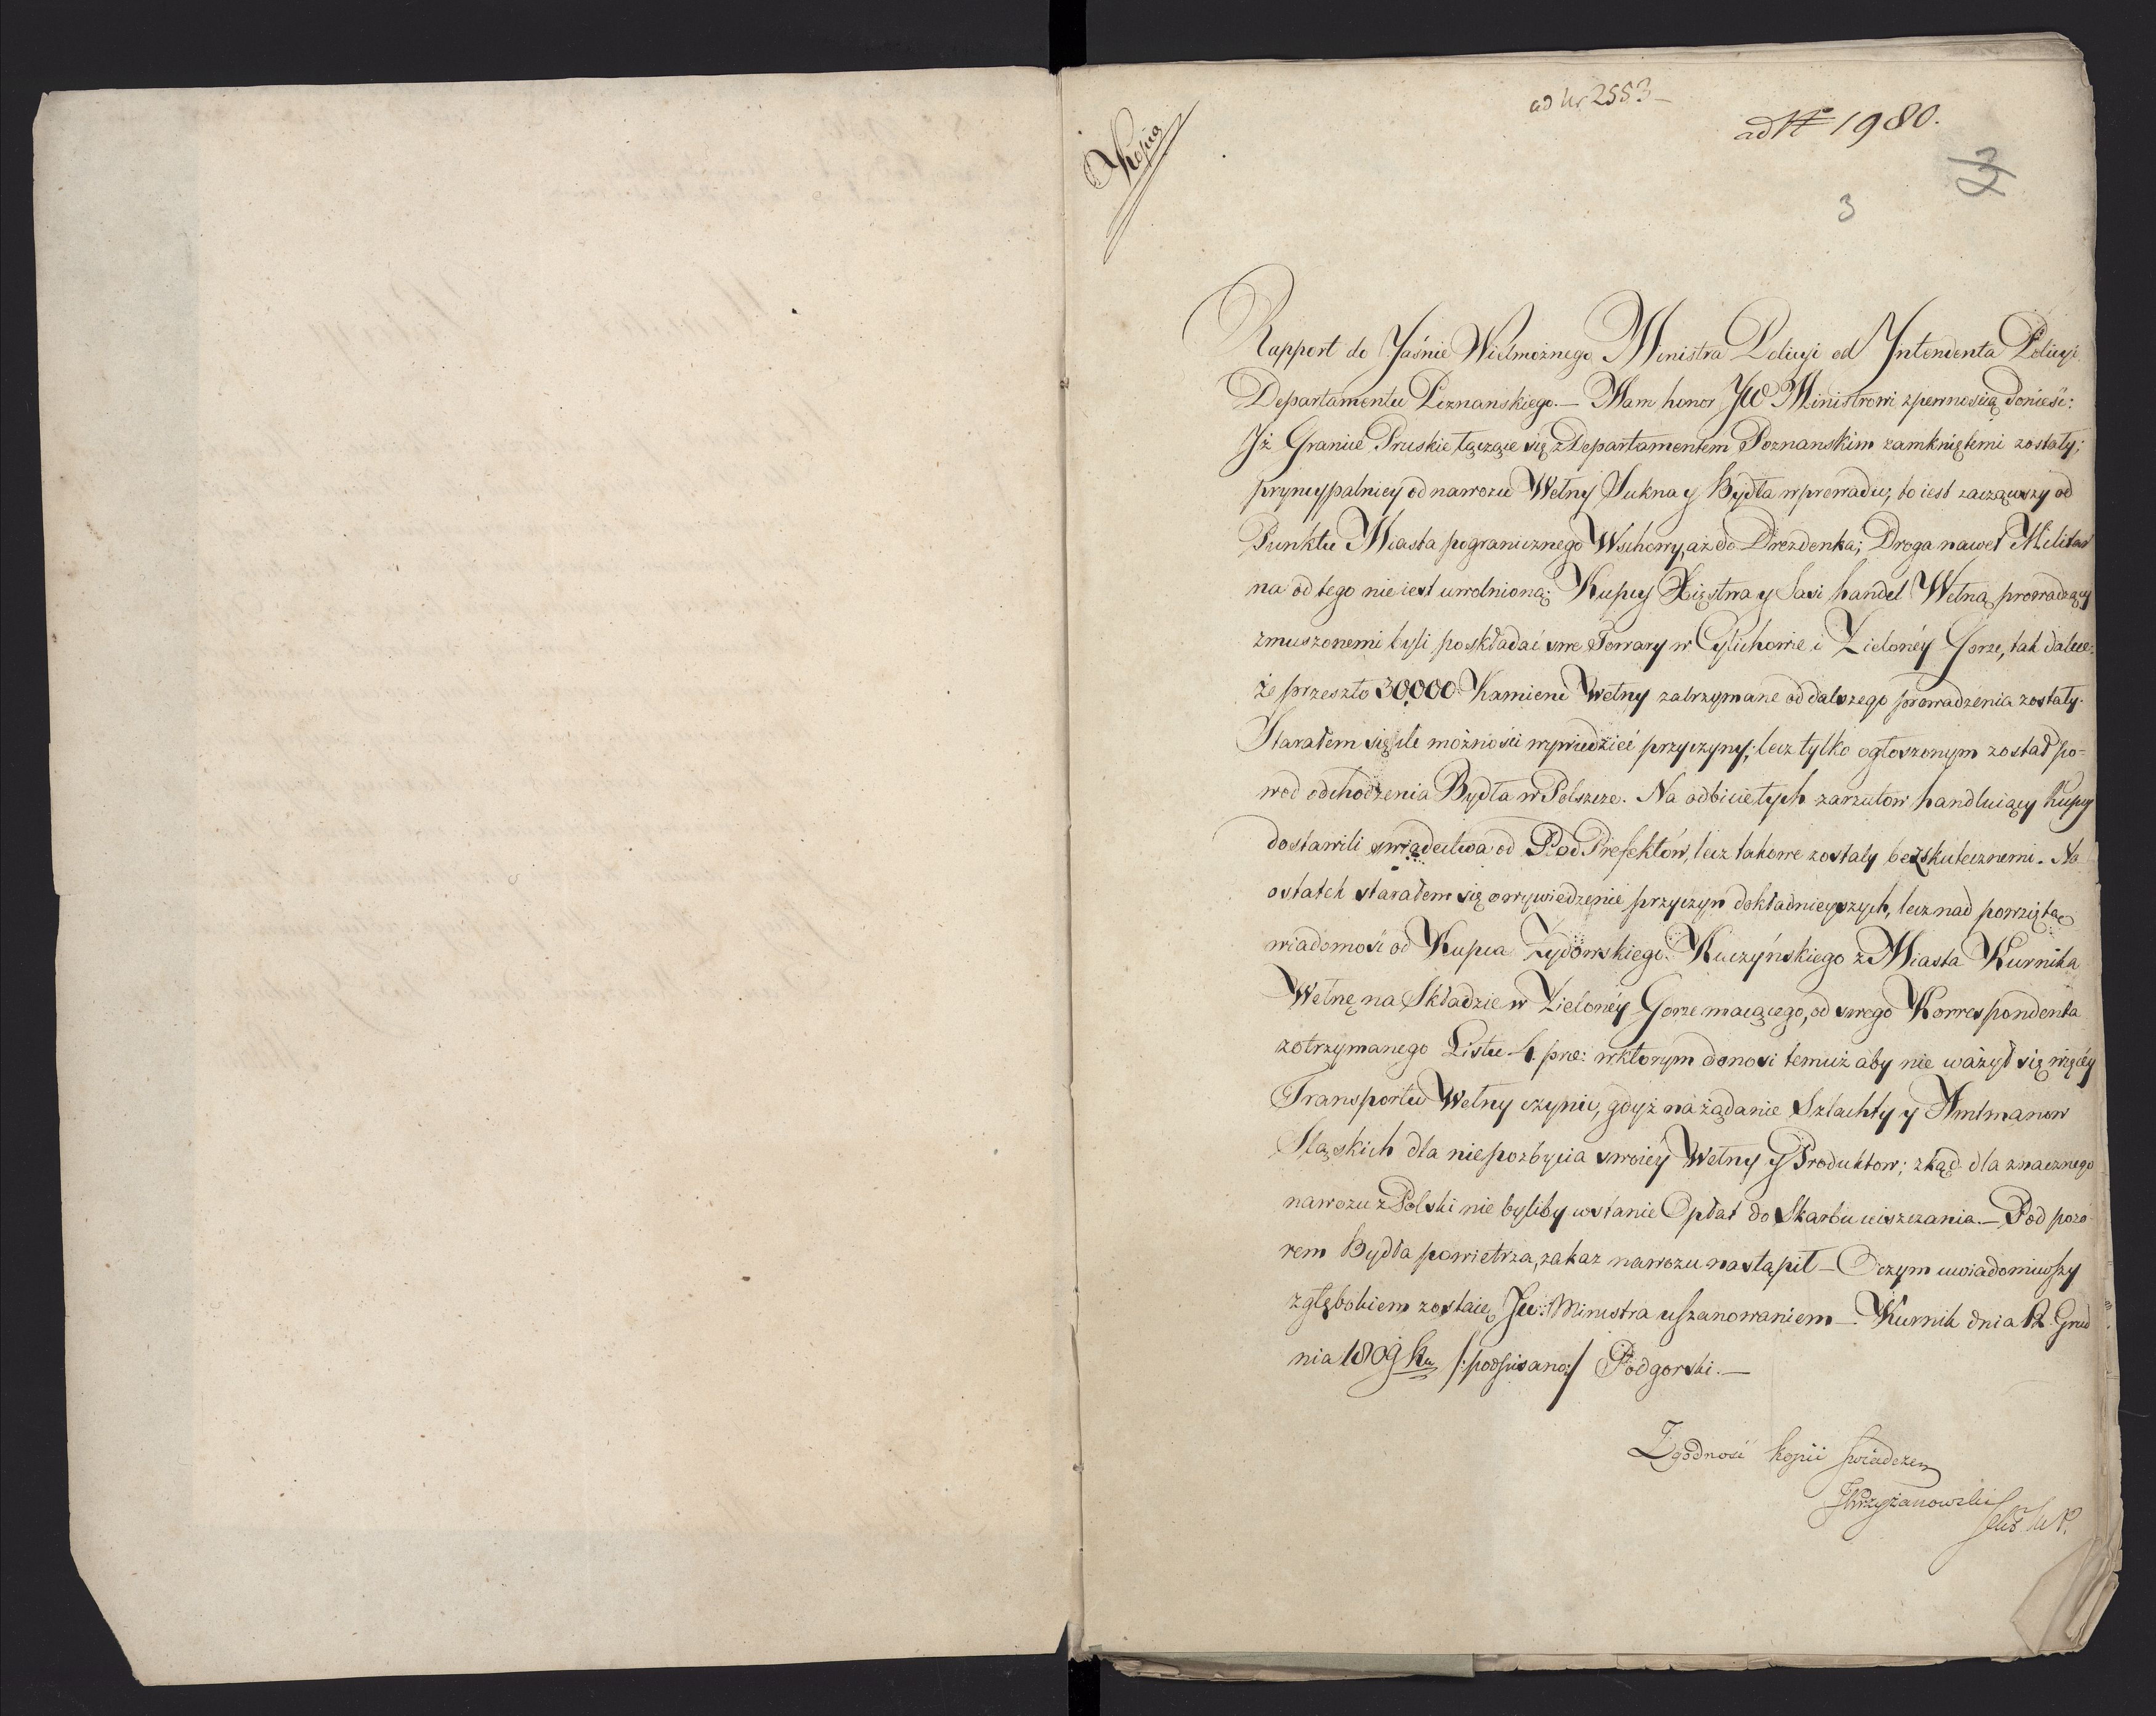 Kopia
ad Nr 2553
ad N 1980.
3
3
Rapport do Jaśnie Wielmożnego Ministra Policyi od Intendenta Policyi
Departamentu Poznanskiego. — Mam honor JW Ministrowi z pewnością donieść:
Iż Granice Pruskie łączące się z Departamentem Poznanskim zamkniętemi zostały;
pryncypalniey od nawozu Wełny Sukna y Bydła w prowadu, to iest zacząwszy od
Punktu Miasta pogranicznego Wschowy, aż do Drezdenka; Droga nawet Militar
na od tego nie iest uwolnioną; Kupcy Xięstwa y Sasi handel Wełną prowadzący
zmuszonemi byli poskładać swe Towary w Cylichowie i Zieloney Gorze, tak dalece:
że przeszło 30,000 Kamieni Wełny zatrzymane od dalszego prowadzenia zostały.
Starałem się ile możności wywiedzieć przyczyny; lecz tylko ogłoszonym został po=
wod odchodzenia Bydła w Polszcze. Na odbicie tych zarzutow handluiący Kupcy
dostawili swiadectwa od PodPrefektów, lecz takowe zostały bezskutecznemi. Na
ostatek starałem się o wywiedzenie przyczyn dokładnieyszych, lecz nad powziętą
wiadomość od Kupca Zydowskiego Kuczyńskiego z Miasta Kurnika
Wełnę na Składzie w Zieloney Gorze maiącego, od swego Korrespondenta
z otrzymanego Listu 4. pre: w ktorym donosi temuż aby nie ważył się więcey
Transportu Wełny czynić, gdyż na żądanie Szlachty y Amtmanow
Sląskich dla niepozbycia swoiey Wełny y Produktow; zkąd dla znacznego
nawozu z Polski nie byliby wstanie Opłat do Skarbu uiszczania. — Pod pozo
rem Bydła powietrza, zakaz nawozu nastąpił — O czym uwiadomiwszy
z głębokiem zostaię JW: Ministra uszanowaniem —. Kurnik dnia 12 Grud
nia 1809 Ru /:podpisano:/ Podgorski. —
Zgodność kopii świadczem
Krzyżanowski